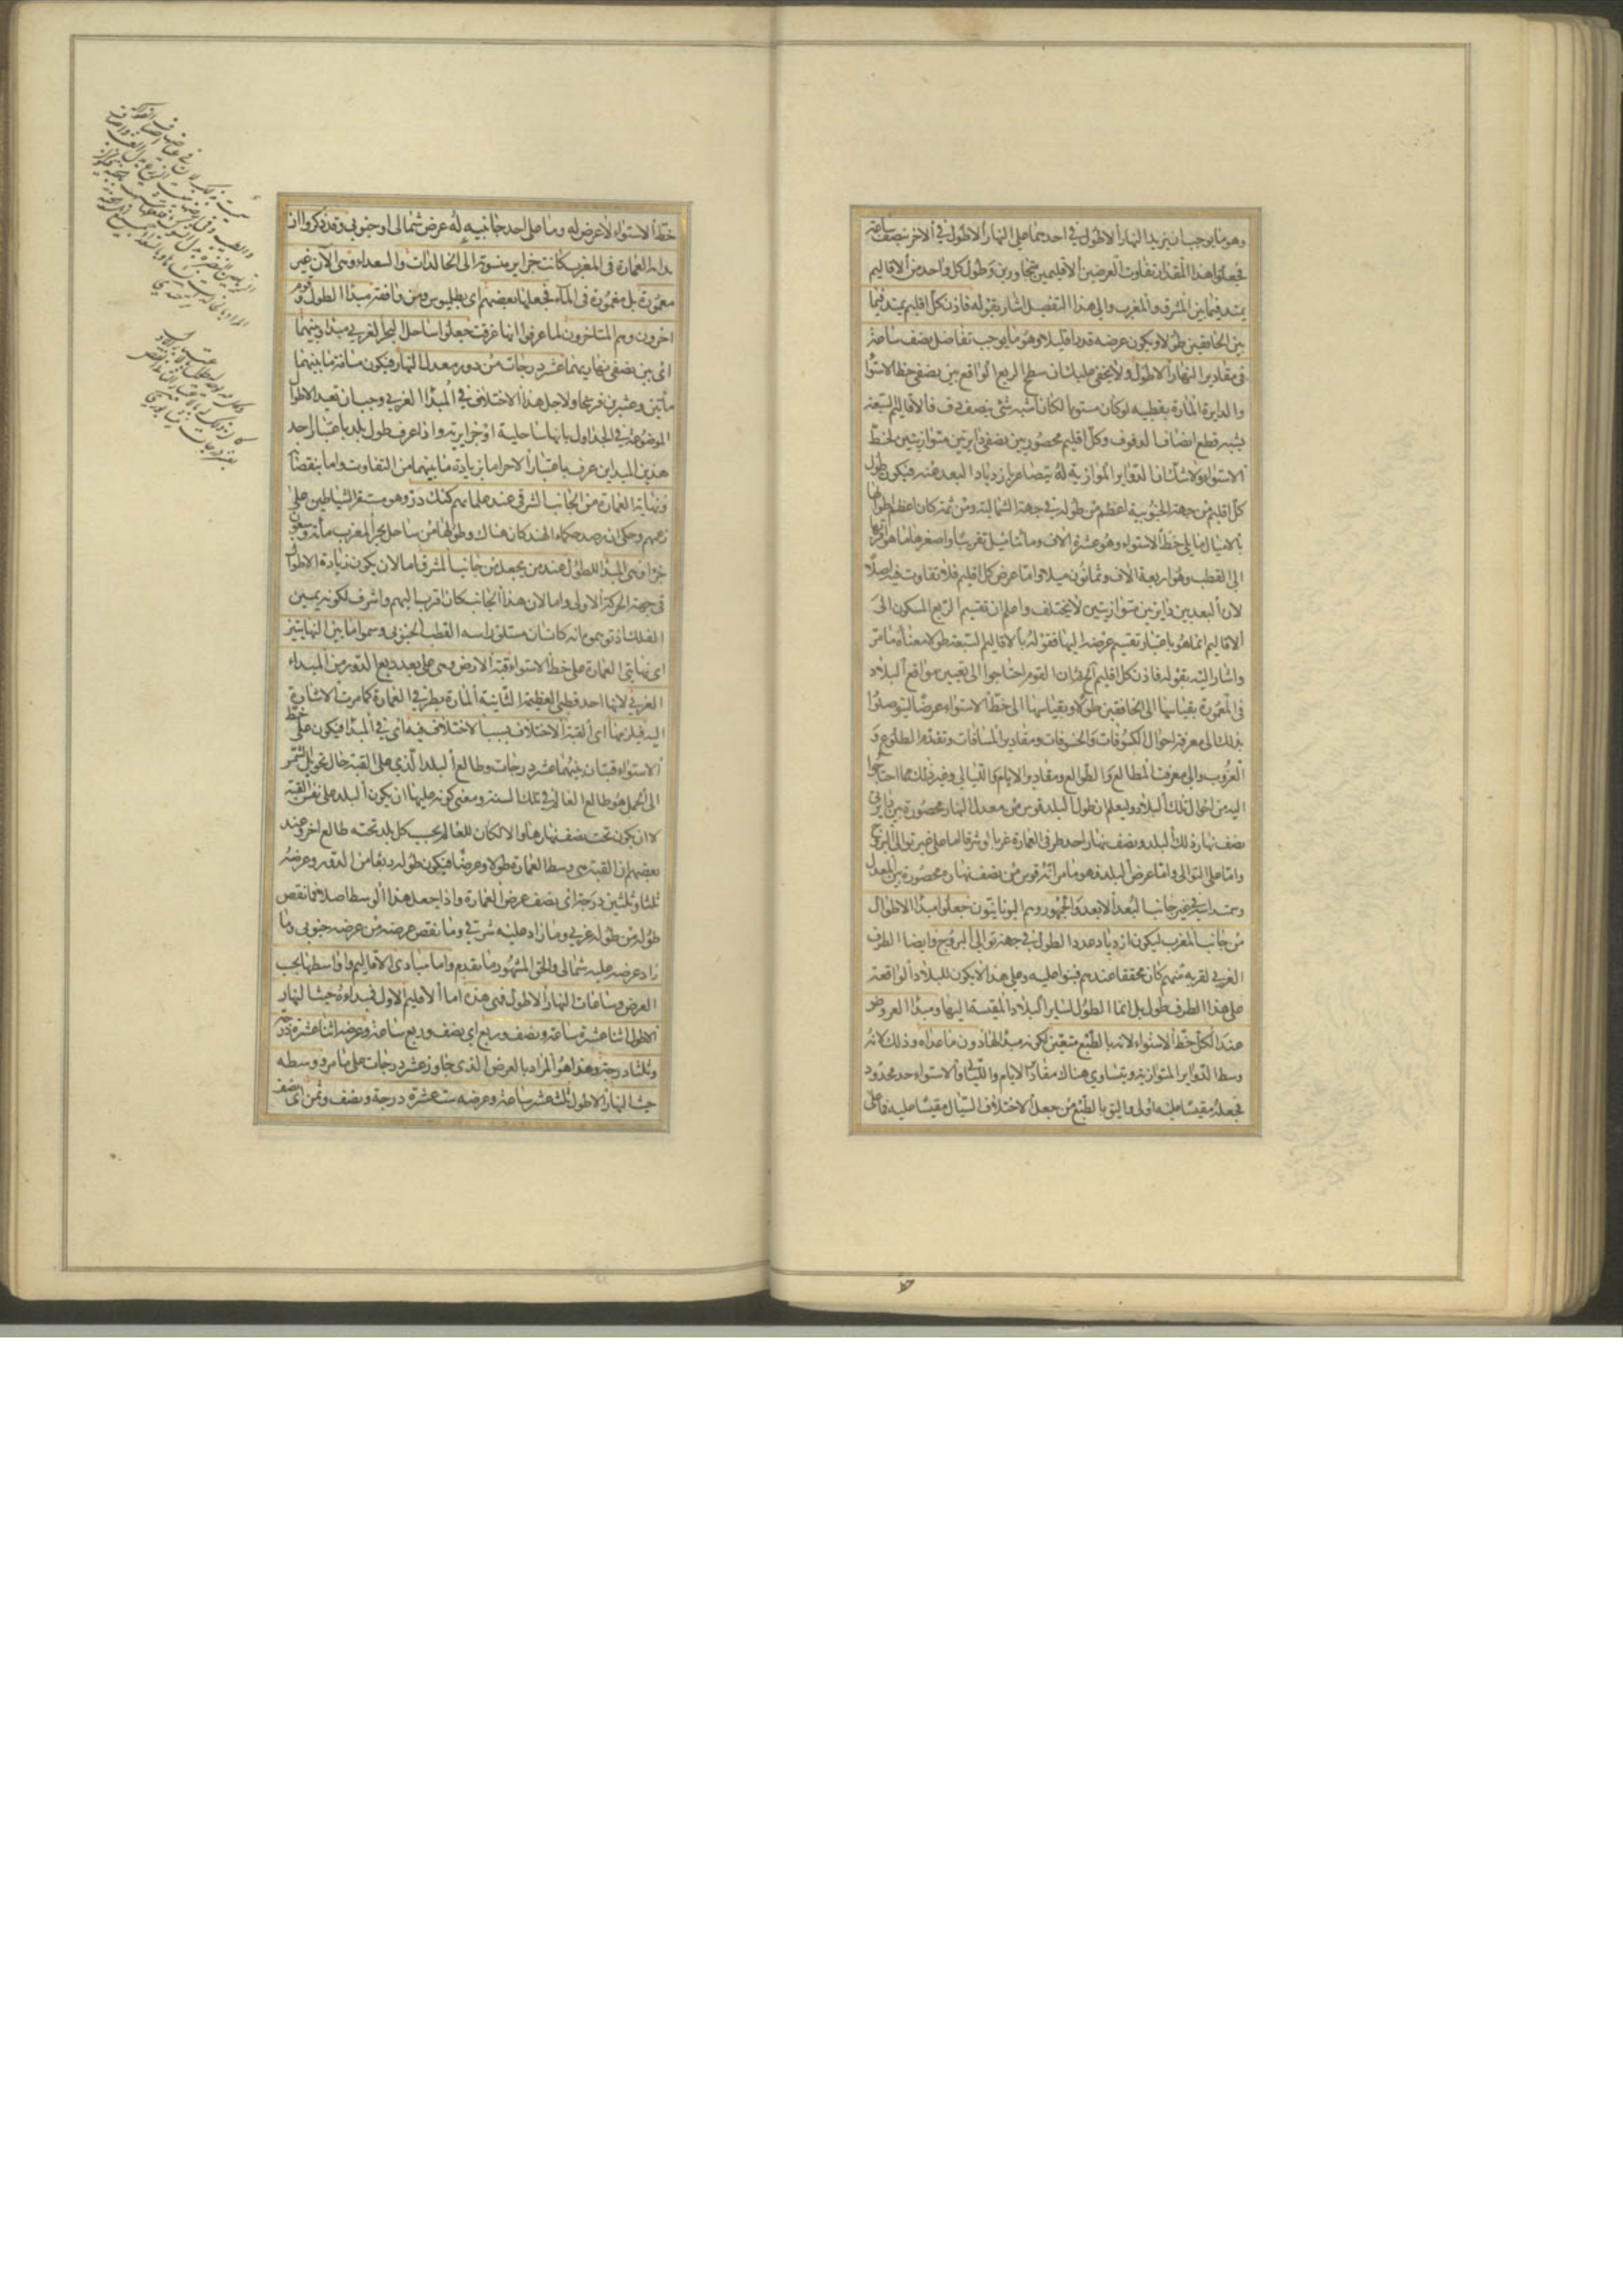 وهو ما يوجب ان يزيد النهار الاطول في احدهما على النهار الاطول في الاخر بنصف ساعة
فجعلوا هذا المقدار تفاوت العرضين الاقليمين متجاورين وطول كل واحد من الاقاليم
يمتد فيما بين المشرق والمغرب والى هذا التفصيل اشار بقوله فاذن كل اقليم يمتد فيما
بين الخافقين طولا ويكون عرضه قدرا قليلا وهو ما يوجب تفاضل نصف ساعة
في مقادير النهار الاطول ولا يخفى عليك ان سطح الربع الواقع بين نصفي خط الاستوا
والدايرة المارة بقطبيه لو كان مستويا لكان اشبه شئ بنصف دف فالاقاليم السبعة
يشبه قطع انصاف الدفوف وكل اقليم محصور بين نصفي دايرتين متوازيتين لخط
الاستواء ولا شك ان الدواير الموازية له يتصاغر بازدياد البعد عنه فيكون طول
كل اقليم من جهة الجنوبية اعظم من طوله في جهة الشمالية ومن ثمه كان اعظم طولها
بالاميال ما يلي خط الاستواء وهو عشرة الاف ومائتا ميل تقريبا واصغرها ما هو اقربها
الى القطب وهو اربعة الاف وثمانون ميلا واما عرض كل اقليم فلا تفاوت فيه اصلا
لان البعد بين دايرتين متوازيتين لا يختلف واعلم ان تقسيم الربع المسكون الى
الاقاليم انما هو باعتبار تقسيم عرضه اليها فقوله بالاقاليم السبعة طولا معناه ما مر
واشار اليه بقوله فاذن كل اقليم آه ثم ان القوم احتاجوا الى تعيين مواقع البلاد
في المعمورة بقياسها الى الخافقين طولا وبقياسها الى خط الاستواء عرضا ليتوصلوا
بذلك الى معرفة احوال الكسوفات والخسوفات ومقادير المسافات وتقدم الطلوع و
الغروب والى معرفة المطالع والطوالع ومقادير الايام والليالي وغير ذلك مما احتاجوا
اليه من احوال تلك البلاد وليعلم ان طول البلد قوس من معدل النهار محصورة بين دايرتي
نصف نهار ذلك البلد ونصف نهار احد طرفي العمارة غربا او شرقا اما على غير توالى البروج
واما على التوالى واما عرض البلد فهو ما مر انه قوس من نصف نهاره محصورة بين المعدل
وسمت راسه في غير جانب البعد الابعد والجمهور وهم اليونانيون جعلوا مبدا الاطوال
من جانب المغرب ليكون ازدياد عدد الطول في جهة توالى البروج وايضا الطرف
الغربي لقربه منهم كان محققا عندهم فبنوا عليه وعلى هذا لا يكون للبلاد الواقعة
على هذا الطرف طول بل انما الطول لساير البلاد المقيسة اليها ومبدا العروض
عند الكل خط الاستواء لانه بالطبع متعين لكونه مبدا لها دون ما عداه وذلك لانه
وسط الدواير المتوازية ويتساوى هناك مقادير الايام والليالي والاستواء حد محدود
فجعله مقيسا عليه اولى واليق بالطبع من جعل الاختلاف السيال مقيسا عليه فما على
خط الاستواء لا عرض له وما على احد جانبيه له عرض شمالي او جنوبي وقد ذكروا ان
بداء العمارة في المغرب كانت جزاير منسوبة الى الخالدات والسعداء وهي الآن غير
معمورة بل مغمورة في الماء فجعلها بعضهم اى بطليوس ومن وافقه مبدا الطول وقوم
اخرون وهم المتاخرون لما عرفوا انها غرقت جعلوا ساحل البحر الغربي مبدا وبينهما
اى بين نصفي نهاريهما عشر درجات من دور معدل النهار فيكون مسافة ما بينهما
مأتين وعشرين فرسخا ولاجل هذا الاختلاف في المبدا الغربي وجب ان تقيد الاطوال
الموضوعة في الجداول بانها ساحلية او جزايرية واذا عرف طول بلد باعتبار احد
هذين المبداين عرف باعتبار الاخر اما بزيادة ما بينهما من التفاوت واما بنقصانه
ونهاية العمارة من الجانب الشرقي عند علمايهم كنك دز وهو مستقر الشياطين على
زعمهم وحكى ان رصد حكماء الهند كان هناك وطولها من ساحل بحر المغرب مأة وسبعون
جزا وهي المبدا للطول عند من يجعله من جانب المشرق اما لان يكون زيادة الاطوال
في جهة الحركة الاولى واما لان هذا الجانب كان اقرب اليهم واشرف لكونه يمين
الفلك اذ توهموه انه كانسان مستلق راسه القطب الجنوبي وسموا ما بين النهايتين
اى نهايتي العمارة على خط الاستواء قبة الارض وهي على بعد ربع الدور من المبداء
الغربي لانها احد قطبي العظيمة الثانية المارة بطرفي العمارة كما مرت الاشارة
اليه فيلزمها اى القبة الاختلاف بسبب الاختلاف فيه اى في المبدا فيكون على خط
الاستواء قبتان بينهما عشر درجات وطالع البلد الذي على القبة حال تحويل الشمس
الى الحمل هو طالع العالم في تلك السنة ومعنى كونه عليها ان يكون البلد على نفس القبة
لا ان يكون تحت نصف نهارها والا لكان للعالم بحسب كل بلد تحته طالع اخر وعند
بعضهم ان القبة هي وسط العمارة طولا وعرضا فيكون طوله ربعا من الدور وعرضه
ثلثا وثلثين درجة اى نصف عرض العمارة واذا جعل هذا الوسط اصلا فما نقص
طوله من طوله غربي وما زاد عليه شرقي وما نقص عرضه من عرضه جنوبي وما
زاد عرضه عليه شمالي والحق المشهور ما تقدم واما مبادى الاقاليم واواسطها بحسب
العرض وساعات النهار الاطول فهي هذه اما الاقليم الاول فمبداءه حيث النهار
الاطول اثنا عشرة ساعة ونصف وربع اى نصف وربع ساعة وعرضه اثنا عشرة درجة
وثلثا درجة وهذا هو المراد بالعرض الذي جاوز عشر درجات على ما مر ووسطه
حيث النهار الاطول ثلث عشر ساعة وعرضه ست عشرة درجة ونصف وثمن اى نصف